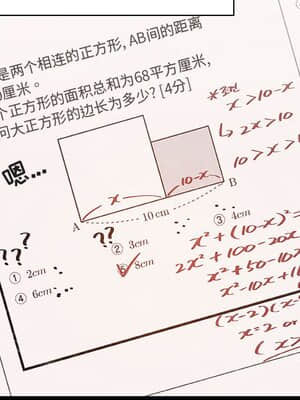 是两个相连的正方形, AB间的距离
厘米。
个正方形的面积总和为68平方厘米,
问大正方形的边长为多少? [4分]
※
x > 10-x
↳ 2x > 10
10 > x >
嗯...
x
10-x
A
10cm
B
?
??
??
① 2cm
② 3cm
③ 4cm
④ 6cm
⑤ 8cm
x²+(10-x)²=
2x²+100-20x
x²+50-10x
x²-10x+1
(x-2)(x-
x=2 or
(x>